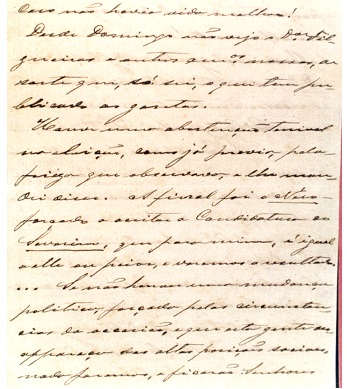 Caso não havia vida melhor!
Desde Domingo não vejo o Dr. Fil-
gueiras e outros am.os nossos, de
sorte que, só sei, o que tem pu-
blicado as gazetas.
Houve uma abstenção terrivel
na eleição, como já previa, pela
frieza que observava, e lhe man-
dei dizer. Afinal foi o
forçado a aceitar a Candidatura do
Saraiva, que para mim, é igual
a elle ou peior, e veremos o resultado.
... Se não houver uma mudança
politica, forçada pelas circumstan-
cias da occasião, e que esta gente de-
sappareça das altas posições sociaes,
nada faremos, e ficarão Senhores